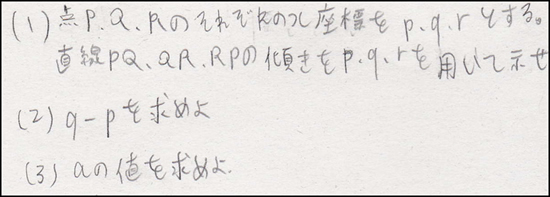 (1) 点P、Q、Rのそれぞれのx座標をp、q、rとする。
直線PQ、QR、RPの傾きをp、q、rを用いて示せ
(2) q-pを求めよ
(3) aの値を求めよ.